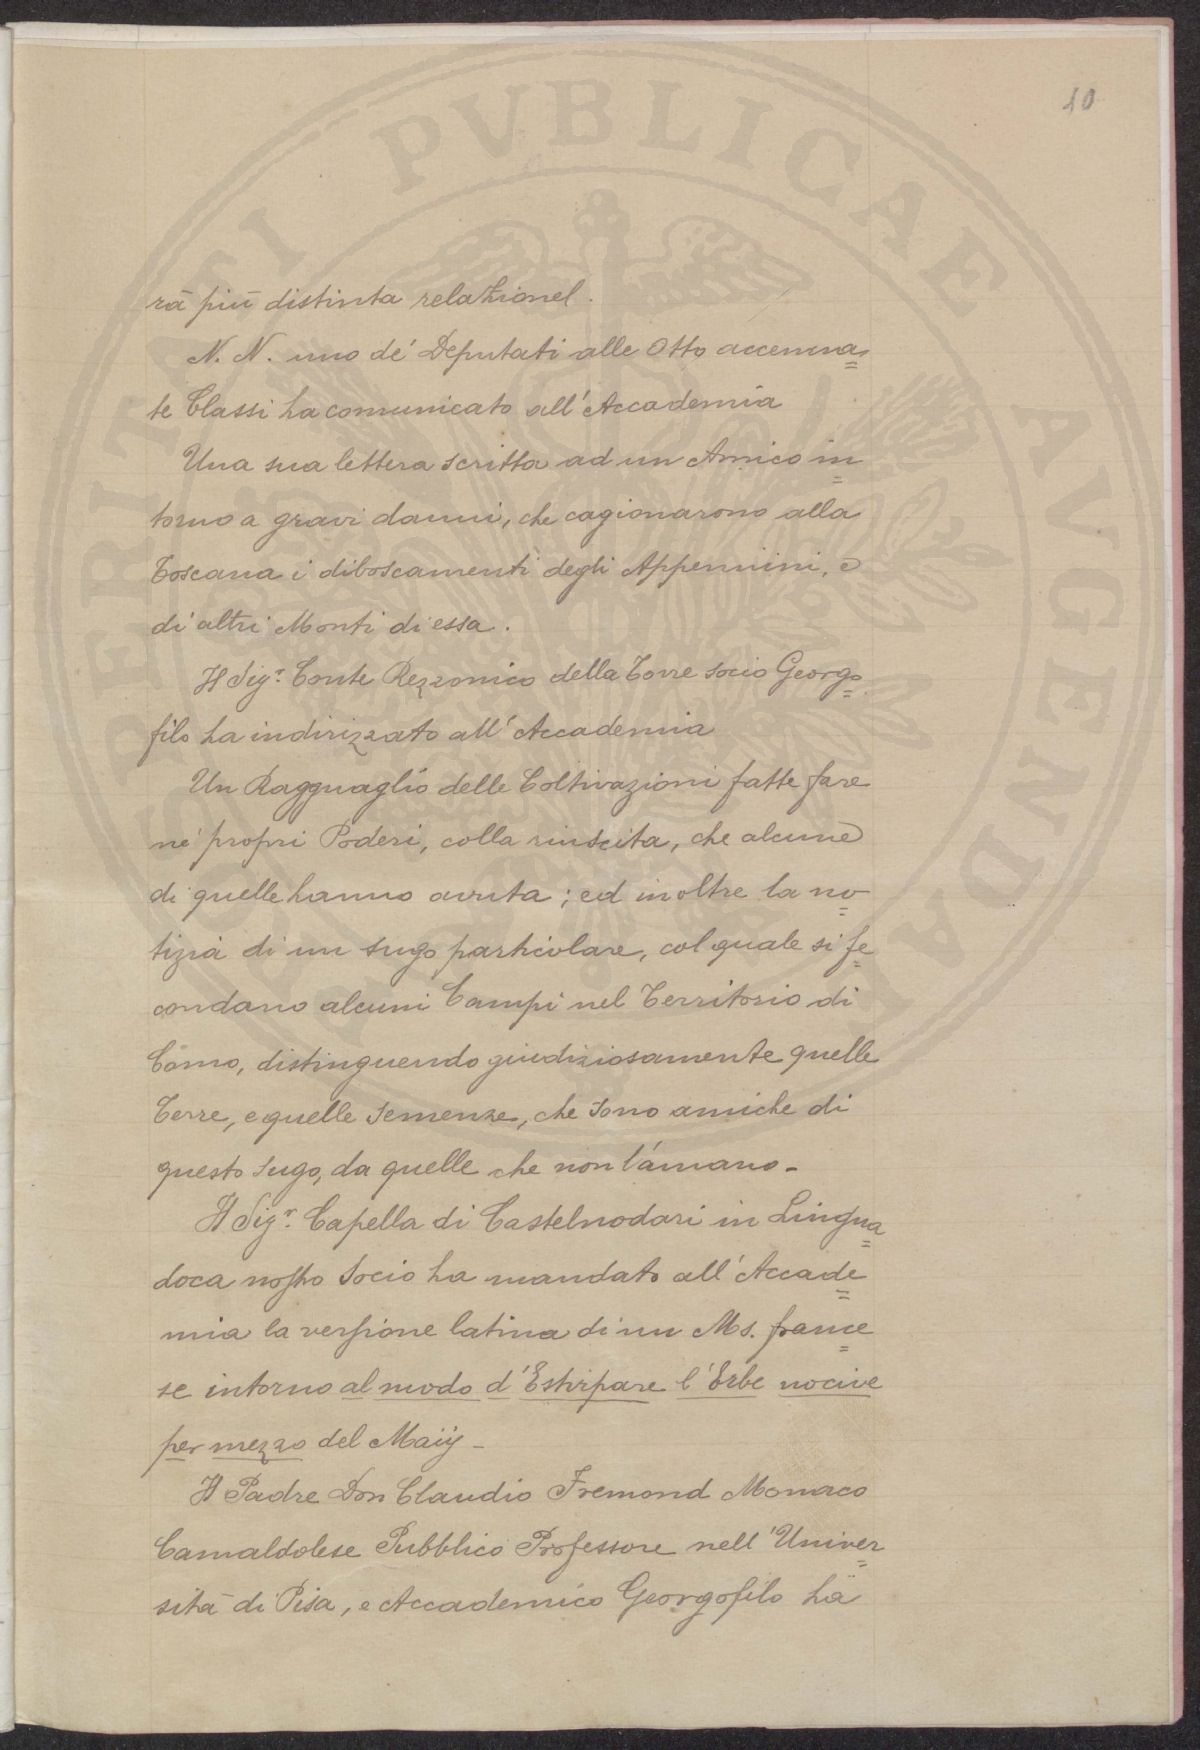 10
rà più distinta relazione.
N. N. uno de' Deputati alle Otto accenna=
te Classi ha comunicato all'Accademia
Una sua lettera scritta ad un Amico in=
torno a gravi danni, che cagionarono alla
Toscana i diboscamenti degli Appennini, e
di altri Monti di essa.
Il Sigr. Conte Rezzonico della Torre socio Georgo=
filo ha indirizzato all'Accademia
Un Ragguaglio delle Coltivazioni fatte fare
ne' propri Poderi, colla riuscita, che alcune
di quelle hanno avuta; ed inoltre la no=
tizia di un sugo particolare, col quale si fe=
condano alcuni Campi nel Territorio di
Como, distinguendo giudiziosamente quelle
Terre, e quelle semenze, che sono amiche di
questo sugo, da quelle che non l'amano.
Il Sigr. Capella di Castelnodari in Lingua=
doca nostro Socio ha mandato all'Accade=
mia la versione latina di un Ms. france=
se intorno al modo d'Estirpare l'Erbe nocive
per mezzo del Maiij.
Il Padre Don Claudio Fremond Monaco
Camaldolese Pubblico Professore nell'Univer=
sità di Pisa, e Accademico Georgofilo ha
PERITATI PVBLICAE AVGENDAE